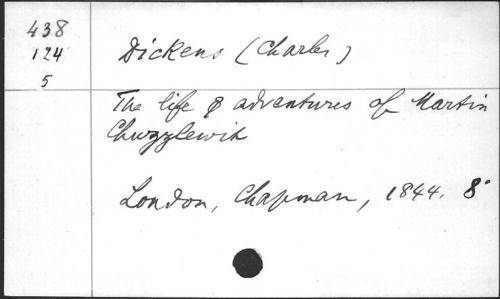 438
124
5
Dickens (Charles)
The life & adventures of Martin
Chuzzlewit
London, Chapman, 1844. 8°